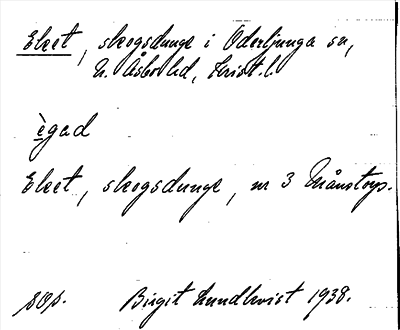 Eket, skogsdunge i Oderljunga sn,
N. Åsbo hd, Krist. l.
ègad
Eket, skogsdunge, nr 3 Månstorp.
sop. Birgit Lundkvist 1938.